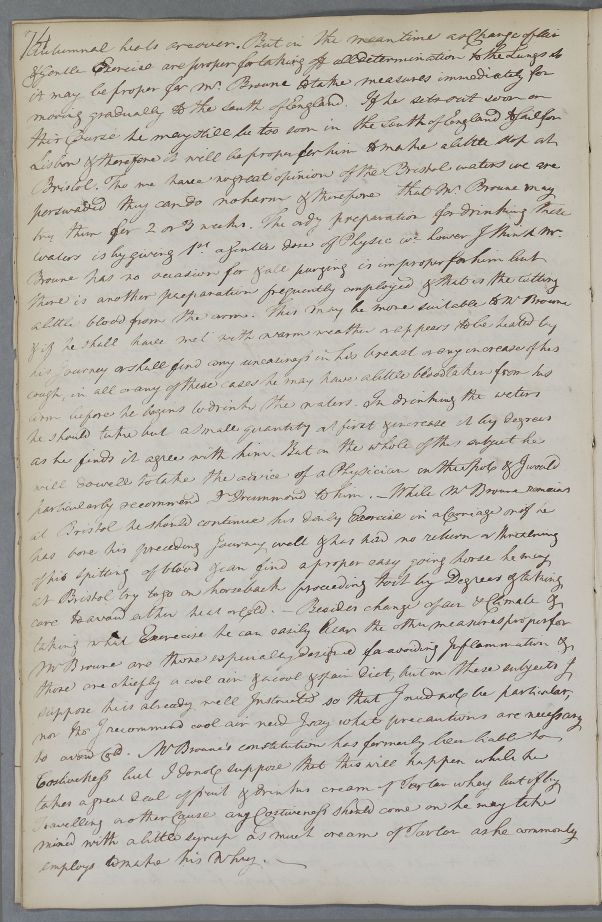 74
Autumnal heats are over. But in the mean time as Change of air
& Gentle Exercise are proper for taking off all determination to the Lungs so
it may be proper for Mr. Broune to take measures immediately for
moving gradually to the South of England. If he sets out soon on
this Course he may still be too soon in the South of England to sail for
Lisbon & therefore it will be proper for him to make a little stop at
Bristol. Tho we have no great opinion of the Bristol waters we are
perswaded they can do no harm & therefore that Mr. Broune may
try them for 2 or 3 weeks. The only preparation for drinking these
waters is by giving 1st a Gentle dose of Physic wc. however I think Mr.
Broune has no occasion for & all purging is improper for him but
there is another preparation frequently employed & that is the letting
a little blood from the arm. This may be more suitable to Mr Broune
& if he shall have met with warm weather & appears to be heated by
his Journey or shall find any uneasiness in his breast or any increase of his
cough, in all or any of these cases he may have a little blood taken from his
arm before he begins to drink the waters. In drinking the waters
he should take but a small quantity at first & increase it by degrees
as he finds it agree with him. But on the whole of this subject he
will do well to take the advice of a Physician on the spot & I would
particularly recommend Dr Drummond to him. — While Mr Broune remains
at Bristol he should continue his daily Exercise in a Carriage or if he
has bore his preceding Journey well & has had no return or threatning
of his spitting of blood & can find a proper easy going horse he may
at Bristol try to go on horseback proceeding to it by Degrees & taking
care to avoid either heat or Cold. — Besides change of air & Climate &
taking what Exercise he can easily bear the other measures proper for
Mr Broune are those especially designed for avoiding Inflammation &
those are chiefly a cool air & a cool & spare Diet, but on these subjects I
suppose he is already well Instructed so that I need not be particular,
nor tho' I recommend cool air need I say what precautions are necessary
to avoid Cold. Mr Broune's constitution has formerly been liable to
Costiveness but I do not suppose that this will happen while he
takes a great deal of fruit & drinks cream of Tartar whey but if by
Travelling or other Cause any Costiveness should come on he may take
mixed with a little syrup as much cream of Tartar as he commonly
employs to make his Whey. —